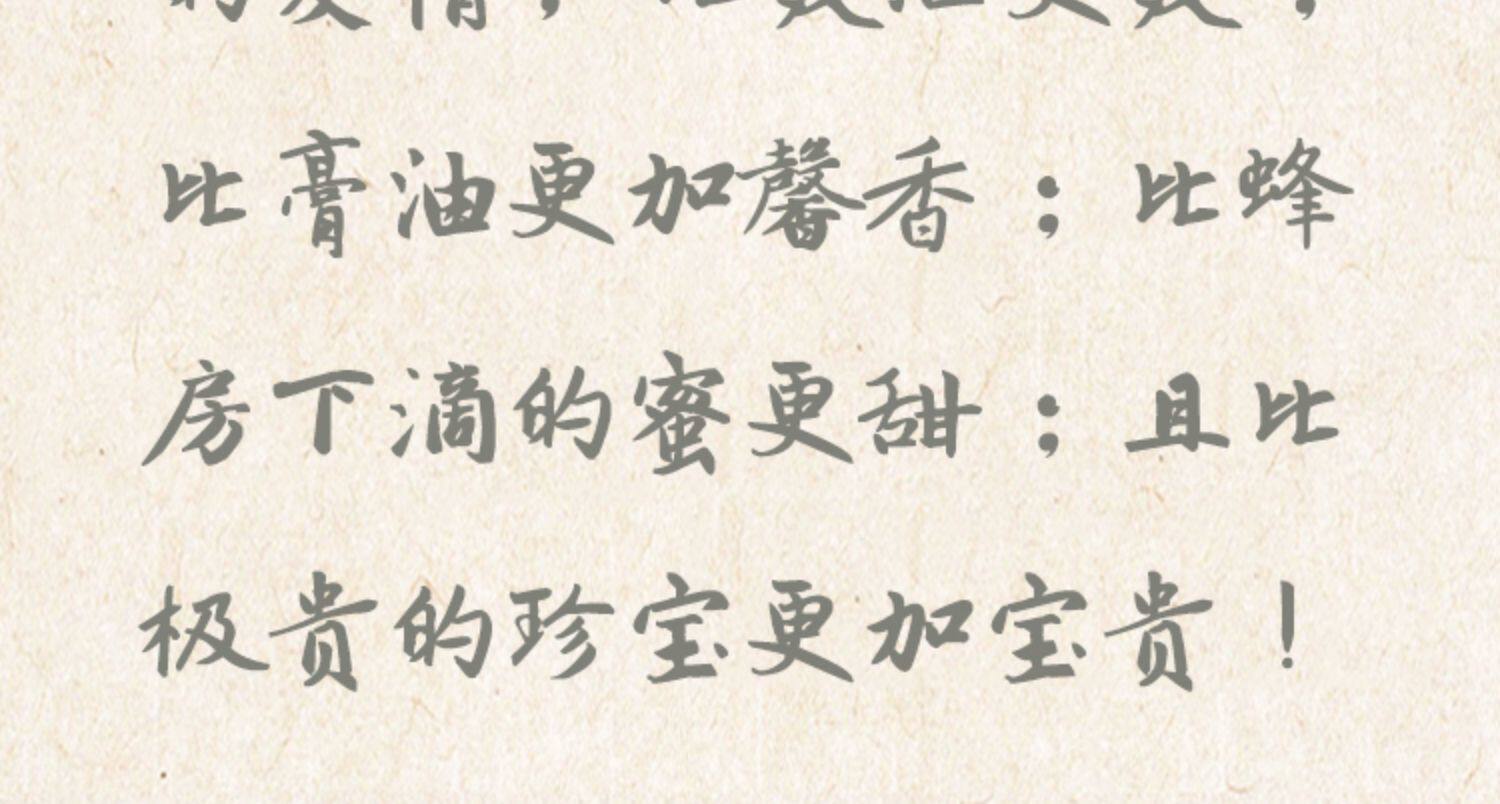 比膏油更加馨香；比蜂
房下滴的蜜更甜；且比
极贵的珍宝更加宝贵！